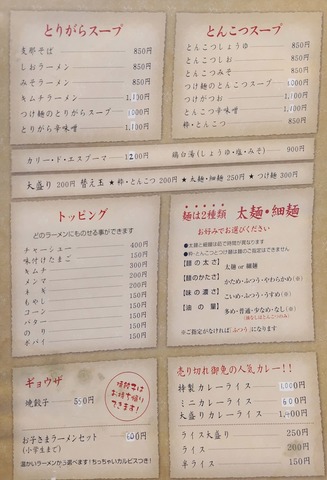 とりがらスープ
支那そば 850円
しおラーメン 850円
みそラーメン 850円
キムチラーメン 1,100円
つけ麺のとりがらスープ 1000円
とりがら辛味噌 1,100円
とんこつスープ
とんこつしょうゆ 850円
とんこつしお 850円
とんこつみそ 850円
つけ麺のとんこつスープ 1000円
つけがつお 1,100円
とんこつ辛味噌 1,100円
粋・とんこつ 850円
カリー・ド・エスプーマ 1200円
鶏白湯(しょうゆ・塩・みそ) 900円
大盛り 200円 替え玉 ★粋・とんこつ 200円 ★太麺・細麺 250円 ★つけ麺 300円
トッピング
どのラーメンにものせる事ができます
チャーシュー 400円
味付けたまご 150円
キムチ 300円
メンマ 200円
ネギ 200円
もやし 150円
コーン 150円
バター 150円
のり 150円
ギパイ 150円
麺は2種類 太麺・細麺
お好みでお選びください
【麺の太さ】 太麺 or 細麺
【麺のかたさ】 かため・ふつう・やわらかめ(※)
【味の濃さ】 こいめ・ふつう・うすめ(※)
【油の量】 多め・普通・少なめ・なし(※)
※ご指定がなければ「ふつう」になります
ギョウザ
焼餃子 550円
焼餃子は
お持ち帰り
できます!
お子さまラーメンセット 600円
(小学生まで)
温かいラーメンから選べます!ちっちゃいカルピスつき!
売り切れ御免の人気カレー!!
特製カレーライス 1,000円
ミニカレーライス 600円
大盛りカレーライス 1,400円
ライス大盛り 250円
ライス 200円
半ライス 150円